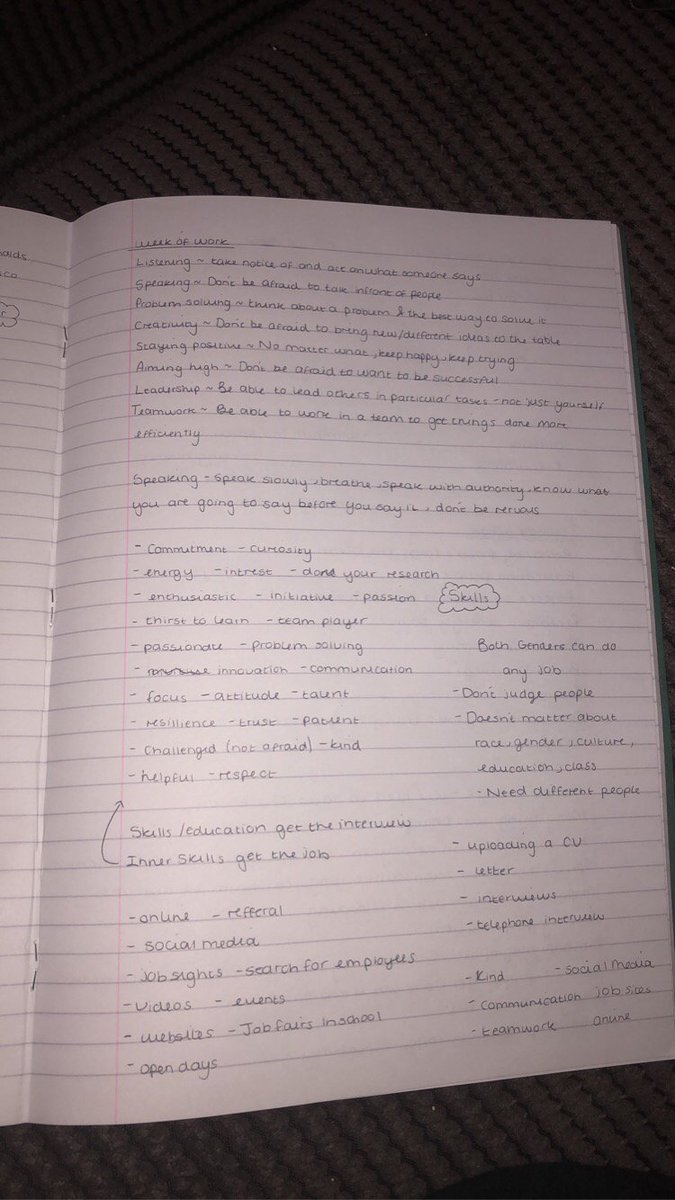 oids
sco
week of work
Listening ~ take notice of and act on what someone says
Speaking ~ Don't be afraid to talk infront of people
Problem solving ~ think about a problem & the best way to solve it
Creativity ~ Don't be afraid to bring new/different ideas to the table
Staying positive ~ No matter what, keep happy, keep trying
Aiming high ~ Don't be afraid to want to be successful
Leadership ~ Be able to lead others in particular tasks - not just yourself
Teamwork ~ Be able to work in a team to get things done more
efficiently
Speaking - speak slowly, breathe, speak with authority, know what
you are going to say before you say it, don't be nervous
- Commitment - curiosity
- energy - intrest - done your research
- enthusiastic - initiative - passion
Skills
- thirst to learn - team player
- passionate - problem solving
- innovation - communication
- focus - attitude - talent
- resillience - trust - patient
- Challenged (not afraid) - kind
- helpful - respect
Both Genders can do
any job
- Don't judge people
- Doesn't matter about
race, gender, culture,
education, class
- Need different people
Skills /education get the interview
Inner Skills get the job
- online - refferal
- social media
- Job sights - search for employees
- Videos - events
- websites - Job fairs in school
- open days
- uploading a CV
- letter
- interviews
- telephone interview
- Kind - social media
- communication job sites
- teamwork online